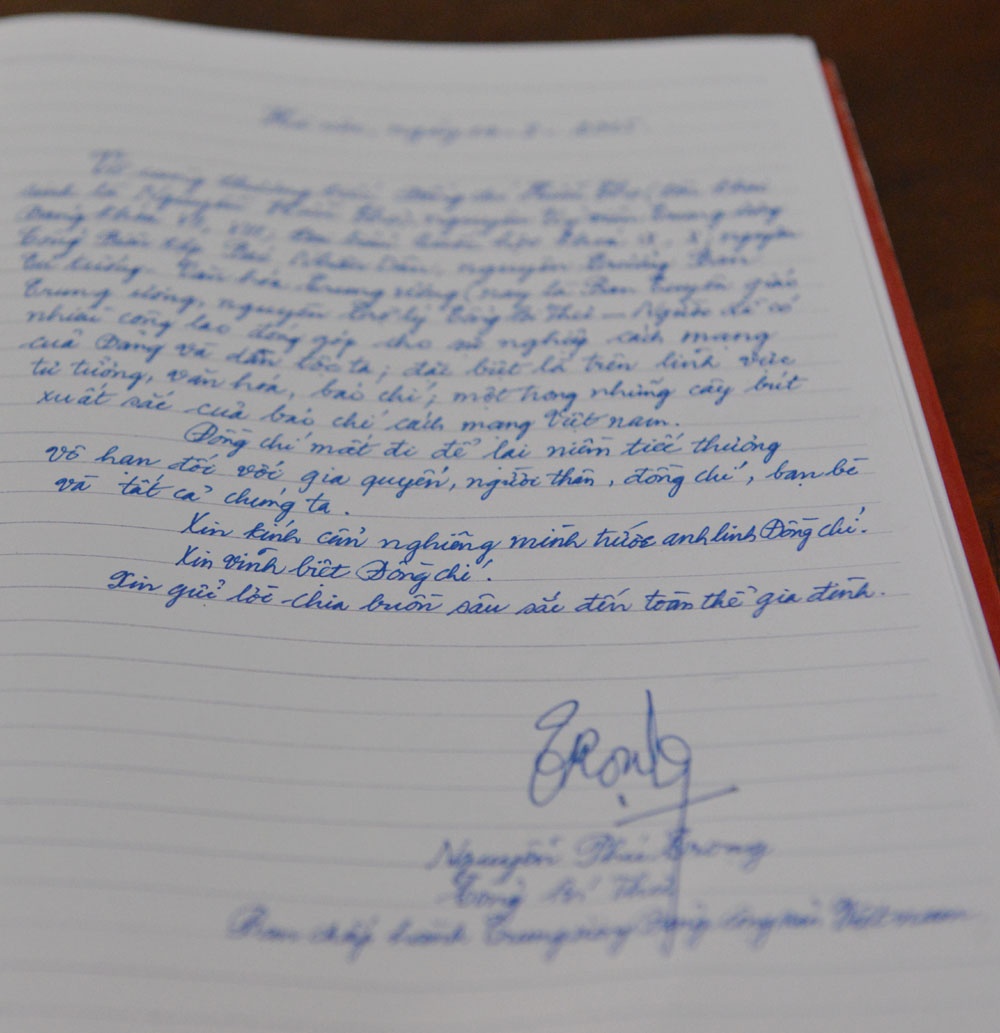 Hà nội, ngày
Vô cùng thương tiếc đồng chí Hữu Thọ, tên khai
sinh là Nguyễn Hữu Thọ, nguyên Ủy viên Trung ương
Đảng khóa VI, VII, đại biểu Quốc hội khoá IX, X, nguyên
Tổng Biên tập Báo Nhân Dân, nguyên Trưởng Ban
Tư tưởng - Văn hóa Trung ương (nay là Ban Tuyên giáo
Trung ương), nguyên Trợ lý Tổng Bí Thư - Người đã có
nhiều công lao đóng góp cho sự nghiệp cách mạng
của Đảng và dân tộc ta; đặc biệt là trên lĩnh vực
tư tưởng, văn hóa, báo chí; một trong những cây bút
xuất sắc của báo chí cách mạng Việt nam.
Đồng chí mất đi để lại niềm tiếc thương
vô hạn đối với gia quyến, người thân, đồng chí, bạn bè
và tất cả chúng ta.
Xin kính cẩn nghiêng mình trước anh linh Đồng chí.
Xin vĩnh biệt Đồng chí.
Xin gửi lời chia buồn sâu sắc đến toàn thể gia đình.
Trọng
Nguyễn Phú Trọng
Tổng Bí Thư
Ban chấp hành Trung ương Đảng cộng sản Việt nam